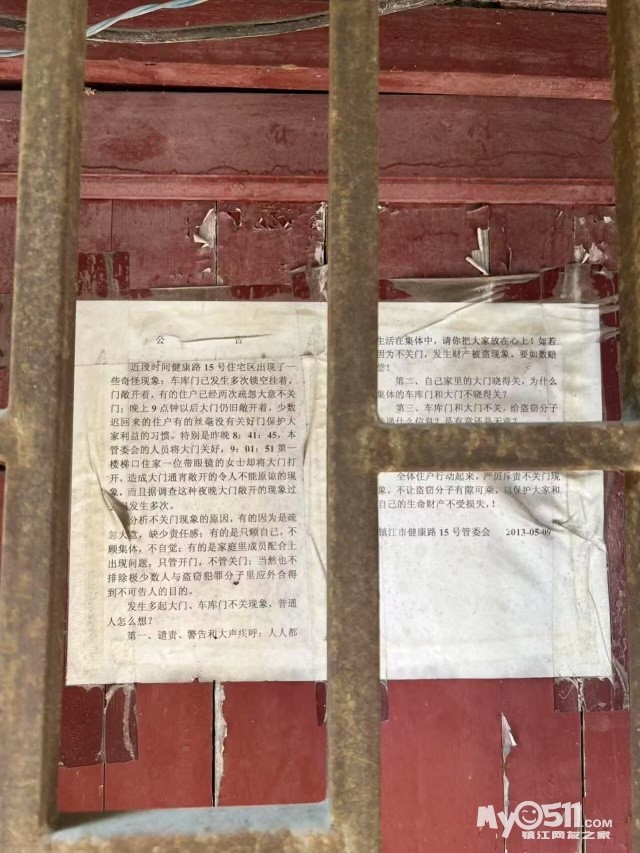 公　　告
近段时间健康路15号住宅区出现了一
些奇怪现象：车库门已发生多次锁空挂着，
门敞开着，有的住户已经两次疏忽大意不关
门；晚上9点钟以后大门仍旧敞开着，少数
迟回来的住户有的丝毫没有关好门保护大
家利益的习惯。特别是昨晚8：41：45，本
管委会的人员将大门关好，9：01：51第一
楼梯口住家一位带眼镜的女士却将大门打
开，造成大门通宵敞开的令人不能原谅的现
象，而且据调查这种夜晚大门敞开的现象过
发生多次。
分析不关门现象的原因，有的因为是疏
忽大意，缺少责任感；有的是只顾自己，不
顾集体，不自觉；有的是家庭里成员配合上
出现问题，只管开门，不管关门；当然也不
排除极少数人与盗窃犯罪分子里应外合得
到不可告人的目的。
发生多起大门、车库门不关现象，普通
人怎么想？
第一、谴责、警告和大声疾呼：人人都
生活在集体中，请你把大家放在心上！如若
因为不关门，发生财产被盗现象，要如数赔
偿！
第二、自己家里的大门晓得关，为什么
集体的车库门和大门不晓得关？
第三、车库门和大门不关，给盗窃分子
通什么信息？是有意还是无意？
全体住户行动起来，严厉斥责不关门现
象，不让盗窃分子有隙可乘，以保护大家和
自己的生命财产不受损失！
镇江市健康路15号管委会　2013-05-09
My0511.com
镇江网友之家